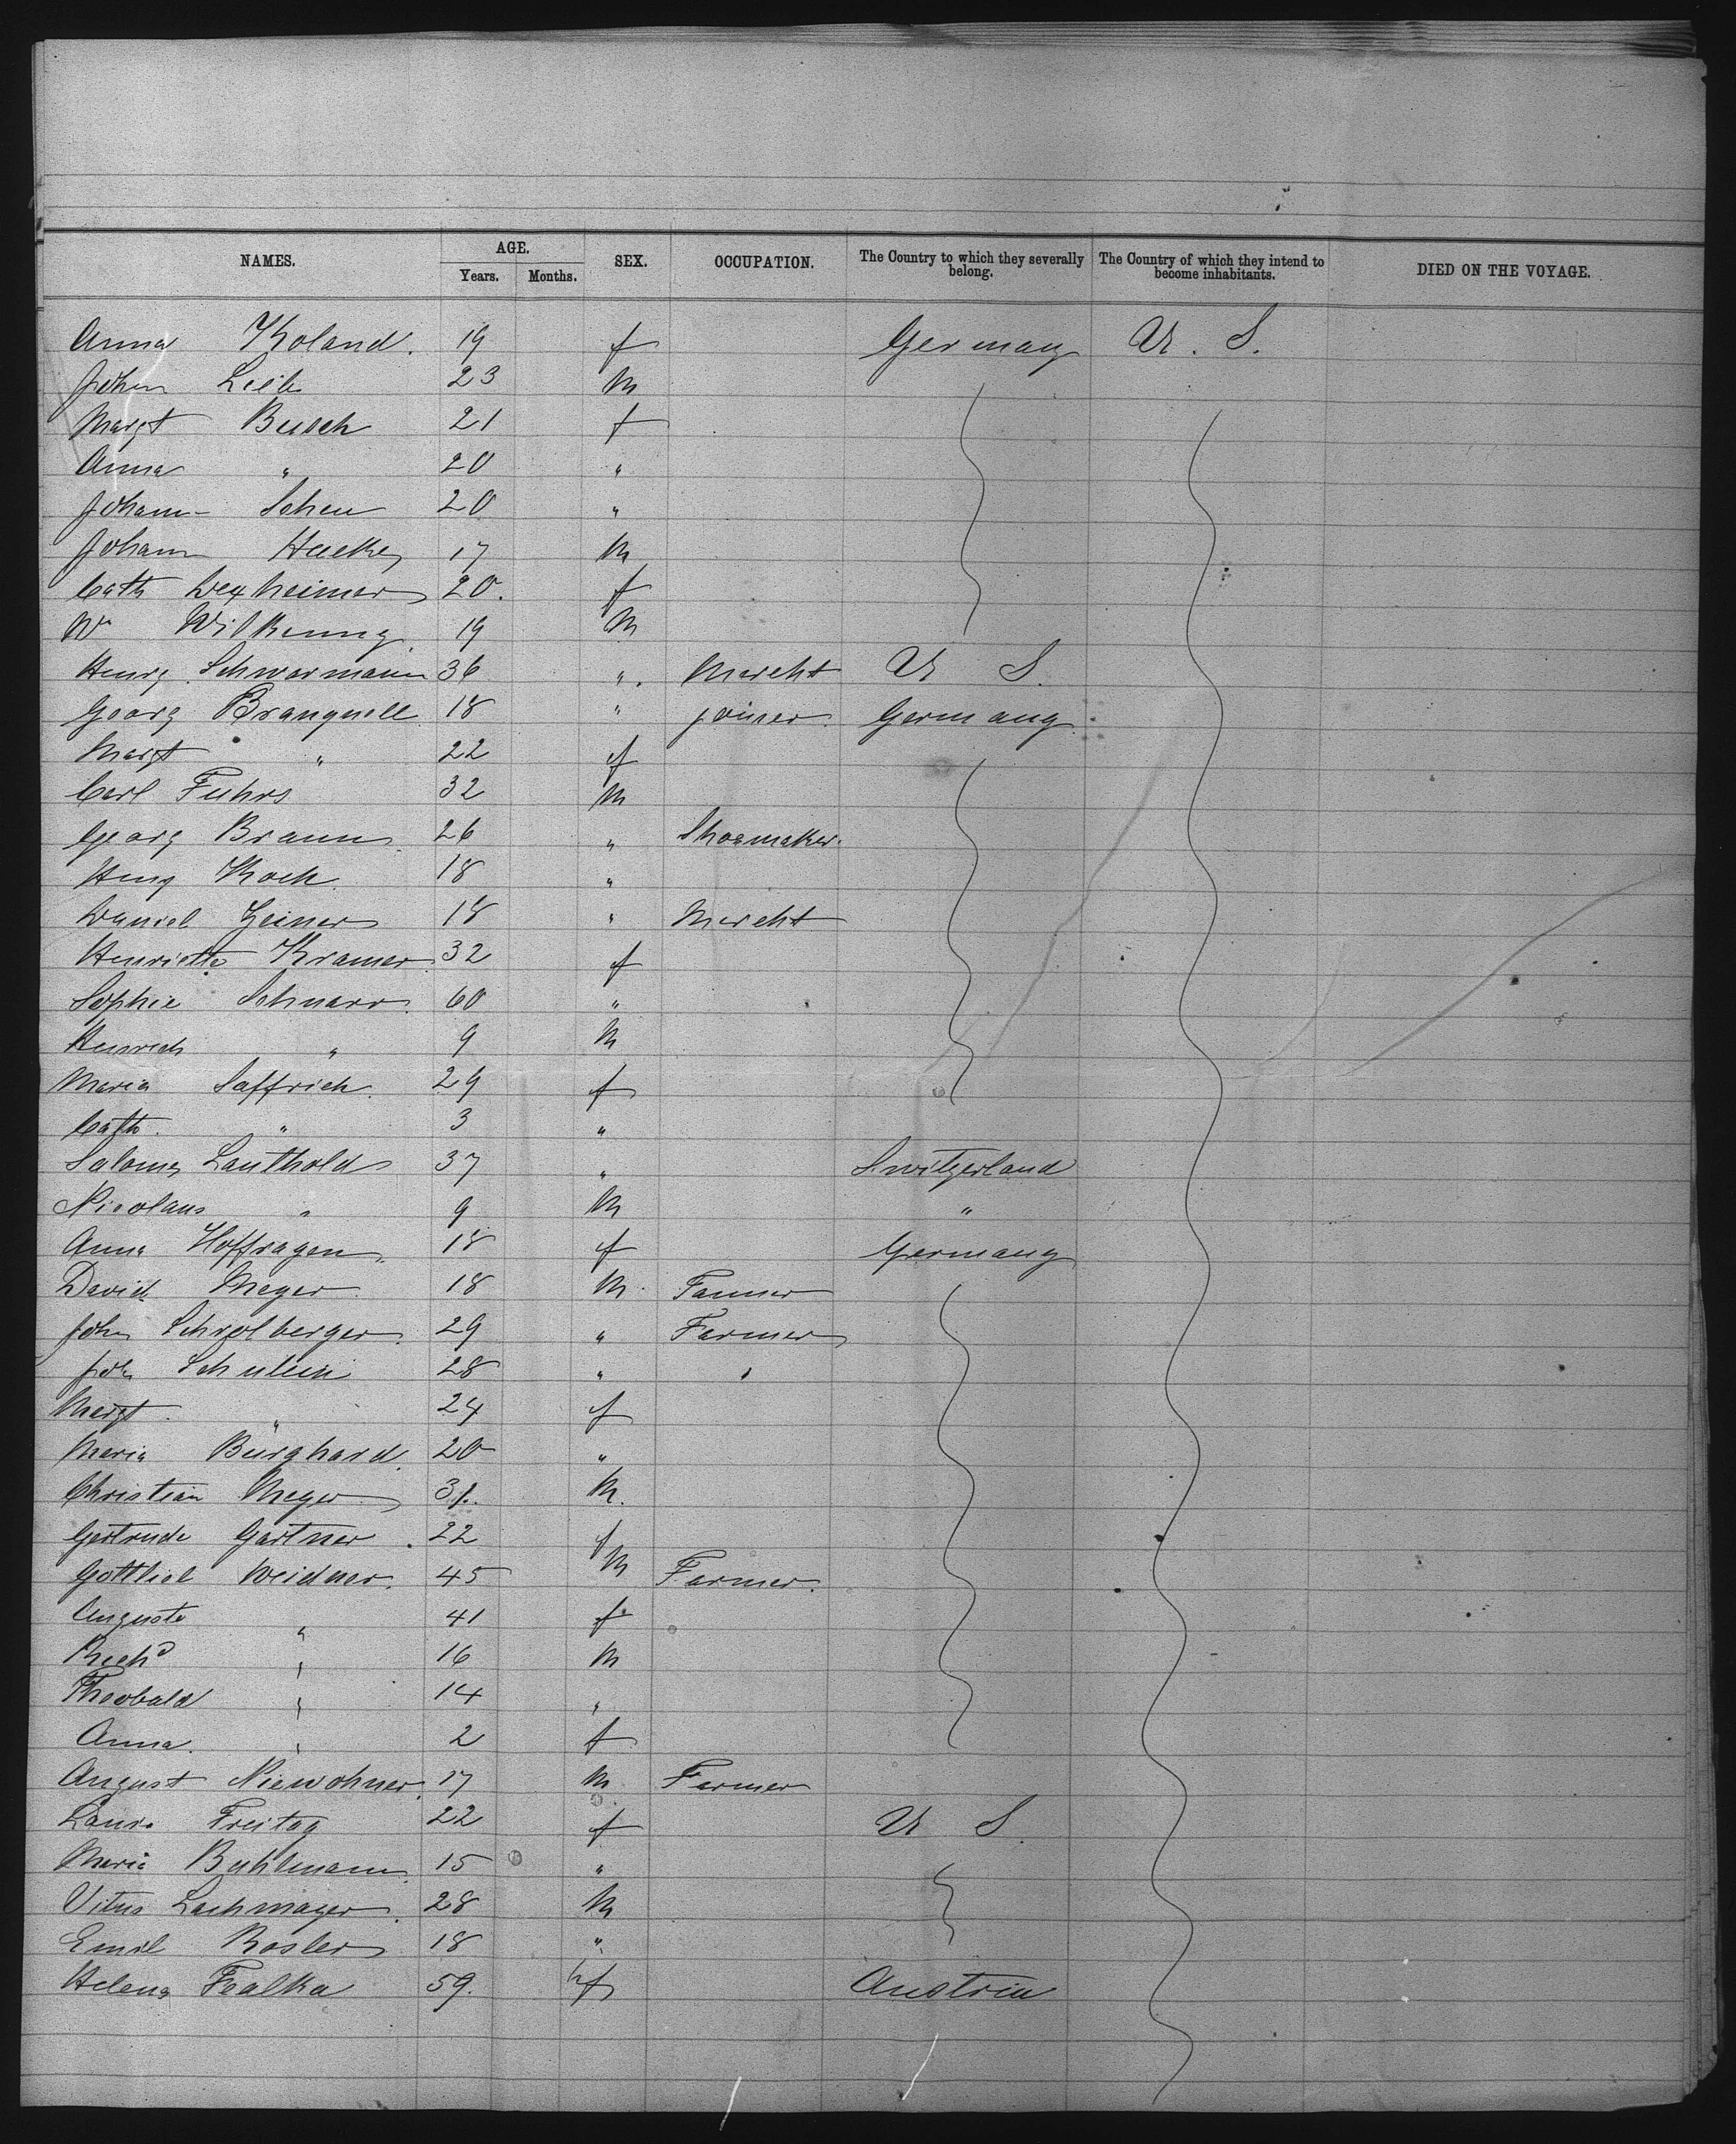 NAMES. AGE. Years. Months. SEX. OCCUPATION. The Country to which they severally belong. The Country of which they intend to become inhabitants. DIED ON THE VOYAGE.
Anna Koland. 19 f Germany U. S.
Johan Leib 23 M
Margt Busch 21 f
Anna " 20 "
Johann Scheu 20 "
Johann 17 M
Cath Dexheimer 20. f
Wm Wilkenning 19 M
Henry Schwarmann 36 ". Mercht U S.
Georg Branquell 18 " joiner. Germany.
Margt " 22 f
Carl Fuhrs 32 M
Georg Braun 26 " Shoemaker.
Heny Koch 18 "
Daniel Zeiner 18 " Mercht
Henriette Kramer 32 f
Sophie Schnarr. 60 "
Heinrich " 9 M
Maria Saffrich. 29 f
Cath. " 3 "
Salome Lauthold 37 " Switzerland
Nicolaus " 9 M "
Anna Hoffragen 18 f Germany
David Meyer 18 M. Tanner
John 29 " Farmer
Joh Schulein 28 " "
Margt. " 24 f
Maria Burghard. 20 "
Christian Meyer 31. M.
Gertrude Gartner. 22 f
Gottlieb Weidner. 45 M Farmer.
Auguste " 41 f
Richd " 16 M
Theobald " 14 "
Anna. " 2 f
August Niewohner. 17 M Farmer
Laura Freitag 22 f U S.
Maria Buhlmann. 15 "
Vitus Lachmayer. 28 M
Emil Rosler 18 "
Helena Fealka 59. f Austria